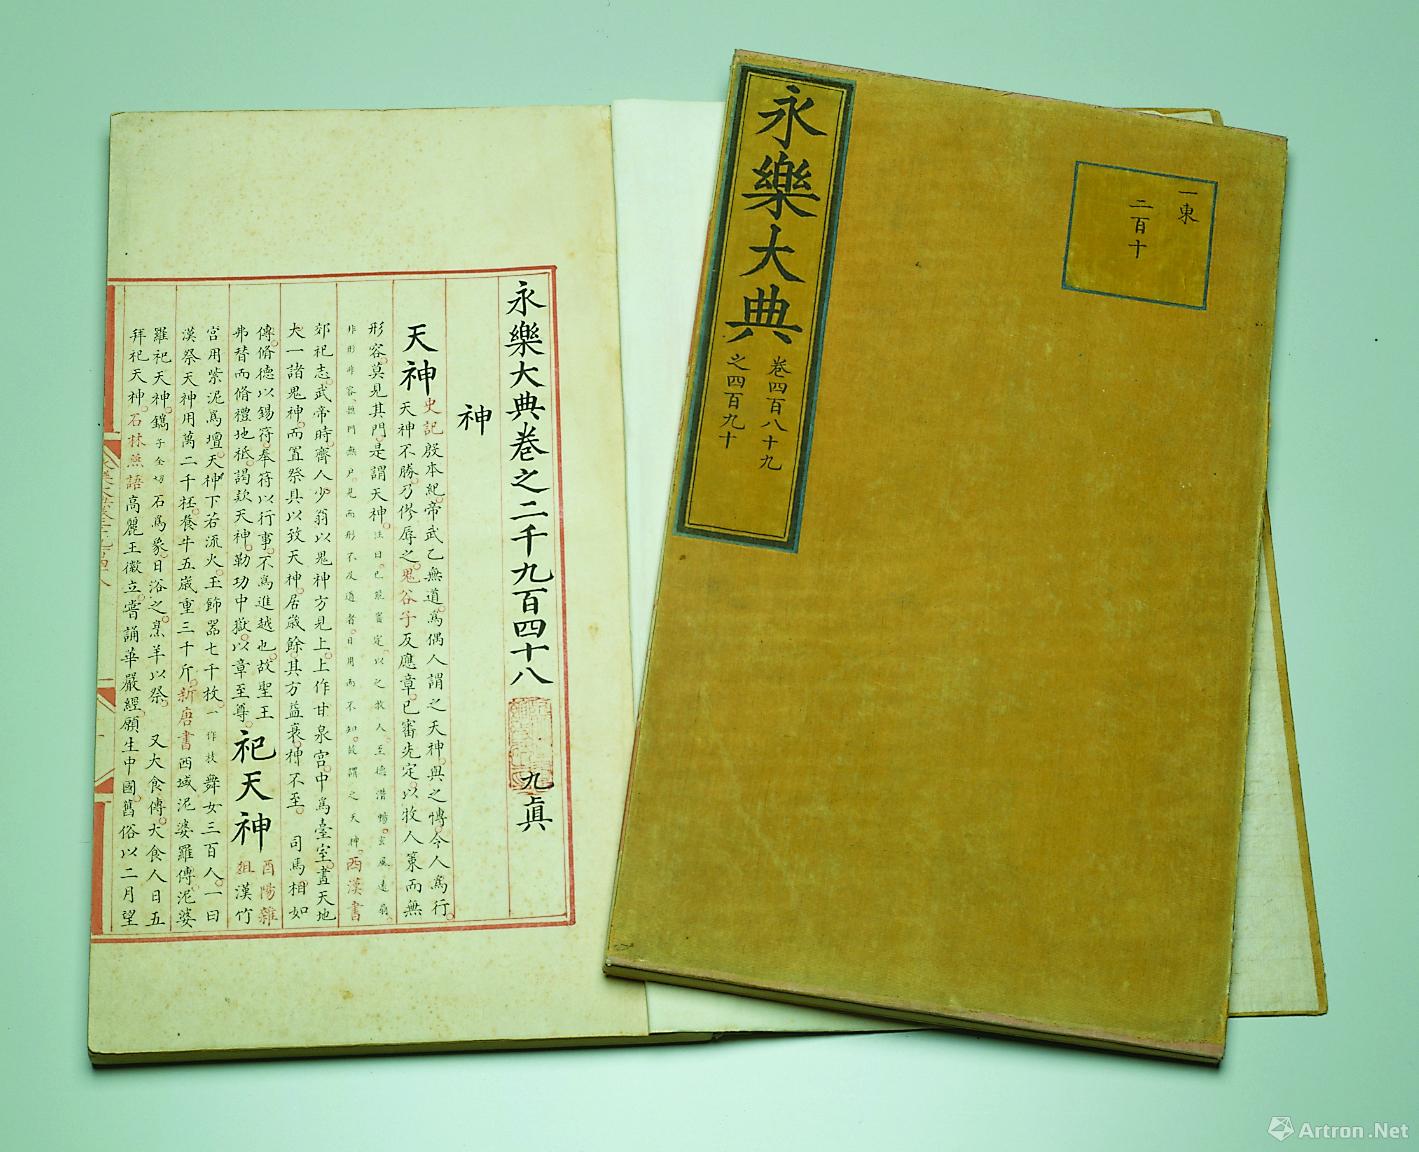 永樂大典卷之二千九百四十八 九眞
神
天神 史記殷本紀。帝武乙無道。爲偶人謂之天神。與之博。令人爲行。
天神不勝。乃僇辱之。鬼谷子反應章。已審先定。以牧人策而無
形容。莫見其門。是謂天神。注曰。己能審定。以之牧人。至德潛暢。玄風遠扇。
非形非容。無門無戶。見而形不及道者。日用而不知。故謂之天神。西漢書
郊祀志。武帝時。齊人少翁以鬼神方見上。上作甘泉宮。中爲臺室。畫天地
大一諸鬼神。而置祭具以致天神。居歲餘。其方益衰。神不至。 司馬相如
傳。脩德以錫符。奉符以行事。不爲進越也。故聖王
弗替而脩禮地祇。謁款天神。勒功中嶽。以章至尊。
祀天神 酉陽雜
俎漢竹
宮用紫泥爲壇。天神下若流火。玉飾器七千枚。一作枝舞女三百人。一曰
漢祭天神用萬二千牲。養牛五歲重三千斤。新唐書西域泥婆羅傳。泥婆
羅祀天神。鐫子全切石爲象。日浴之。烹羊以祭。 又大食傳。大食人日五
拜祀天神。石林燕語高麗王徽立。嘗誦華嚴經。願生中國。舊俗以二月望
永樂大典
卷四百八十九
之四百九十
一東
二百十
Artron.Net